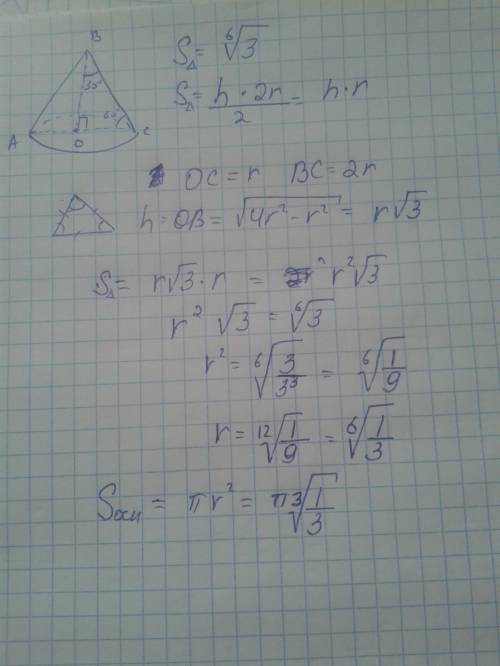 B
30°
60°
A
O
C
S△ = ⁶√3
S△ = (h · 2r)/2 = h · r
OC = r BC = 2r
h = OB = √(4r² − r²) = r√3
S△ = r√3 · r = r²√3
r² √3 = ⁶√3
r² = ⁶√(3/3³) = ⁶√(1/9)
r = ¹²√(1/9) = ⁶√(1/3)
Sосн = πr² = π³√(1/3)